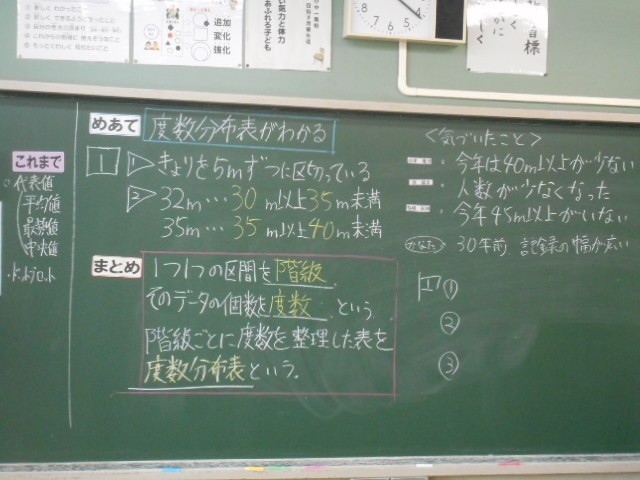 追加
変化
強化
い気力と体力
あふれる子ども
指標
これまで
○代表値
平均値
最頻値
中央値
・ドットプロット
めあて 度数分布表がわかる
1 ① きょりを5mずつに区切っている
② 32m…30m以上35m未満
35m…35m以上40m未満
まとめ 1つ1つの区間を階級、
そのデータの個数を度数 という
階級ごとに度数を整理した表を
度数分布表という。
<気づいたこと>
・今年は40m以上が少ない
・人数が少なくなった
・今年45m以上がいない
かなた 30年前、記録の幅が広い
1 ①
②
③